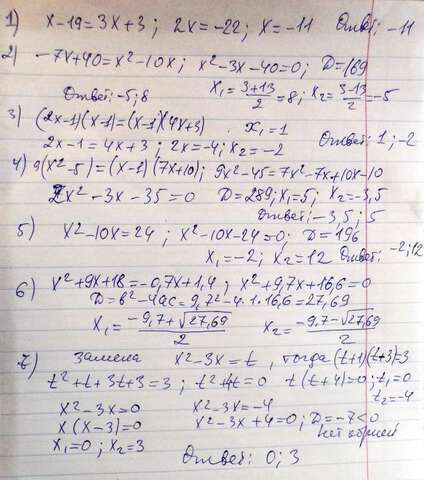 1) x-19=3x+3; 2x=-22; x=-11 Ответ: -11
2) -7x+40=x²-10x; x²-3x-40=0; D=169
Ответ: -5; 8 x₁=(3+13)/2=8; x₂=(3-13)/2=-5
3) (2x-1)(x-1)=(x-1)(4x+3) x₁=1
2x-1=4x+3; 2x=-4; x₂=-2 Ответ: 1; -2
4) 9(x²-5)=(x-1)(7x+10); 9x²-45=7x²-7x+10x-10
2x²-3x-35=0 D=289; x₁=5; x₂=-3,5
Ответ: -3,5; 5
5) x²-10x=24; x²-10x-24=0; D=196
x₁=-2; x₂=12 Ответ: -2; 12
6) x²+9x+18=-0,7x+1,4; x²+9,7x+16,6=0
D=b²-4ac=9,7²-4·1·16,6=27,69
x₁=(-9,7+√27,69)/2 x₂=(-9,7-√27,69)/2
7) Замена x²-3x=t, тогда (t+1)(t+3)=3
t²+t+3t+3=3; t²+4t=0 t(t+4)=0; t₁=0
t₂=-4
x²-3x=0 x²-3x=-4
x(x-3)=0 x²-3x+4=0; D=-7<0
x₁=0; x₂=3 нет корней
Ответ: 0; 3